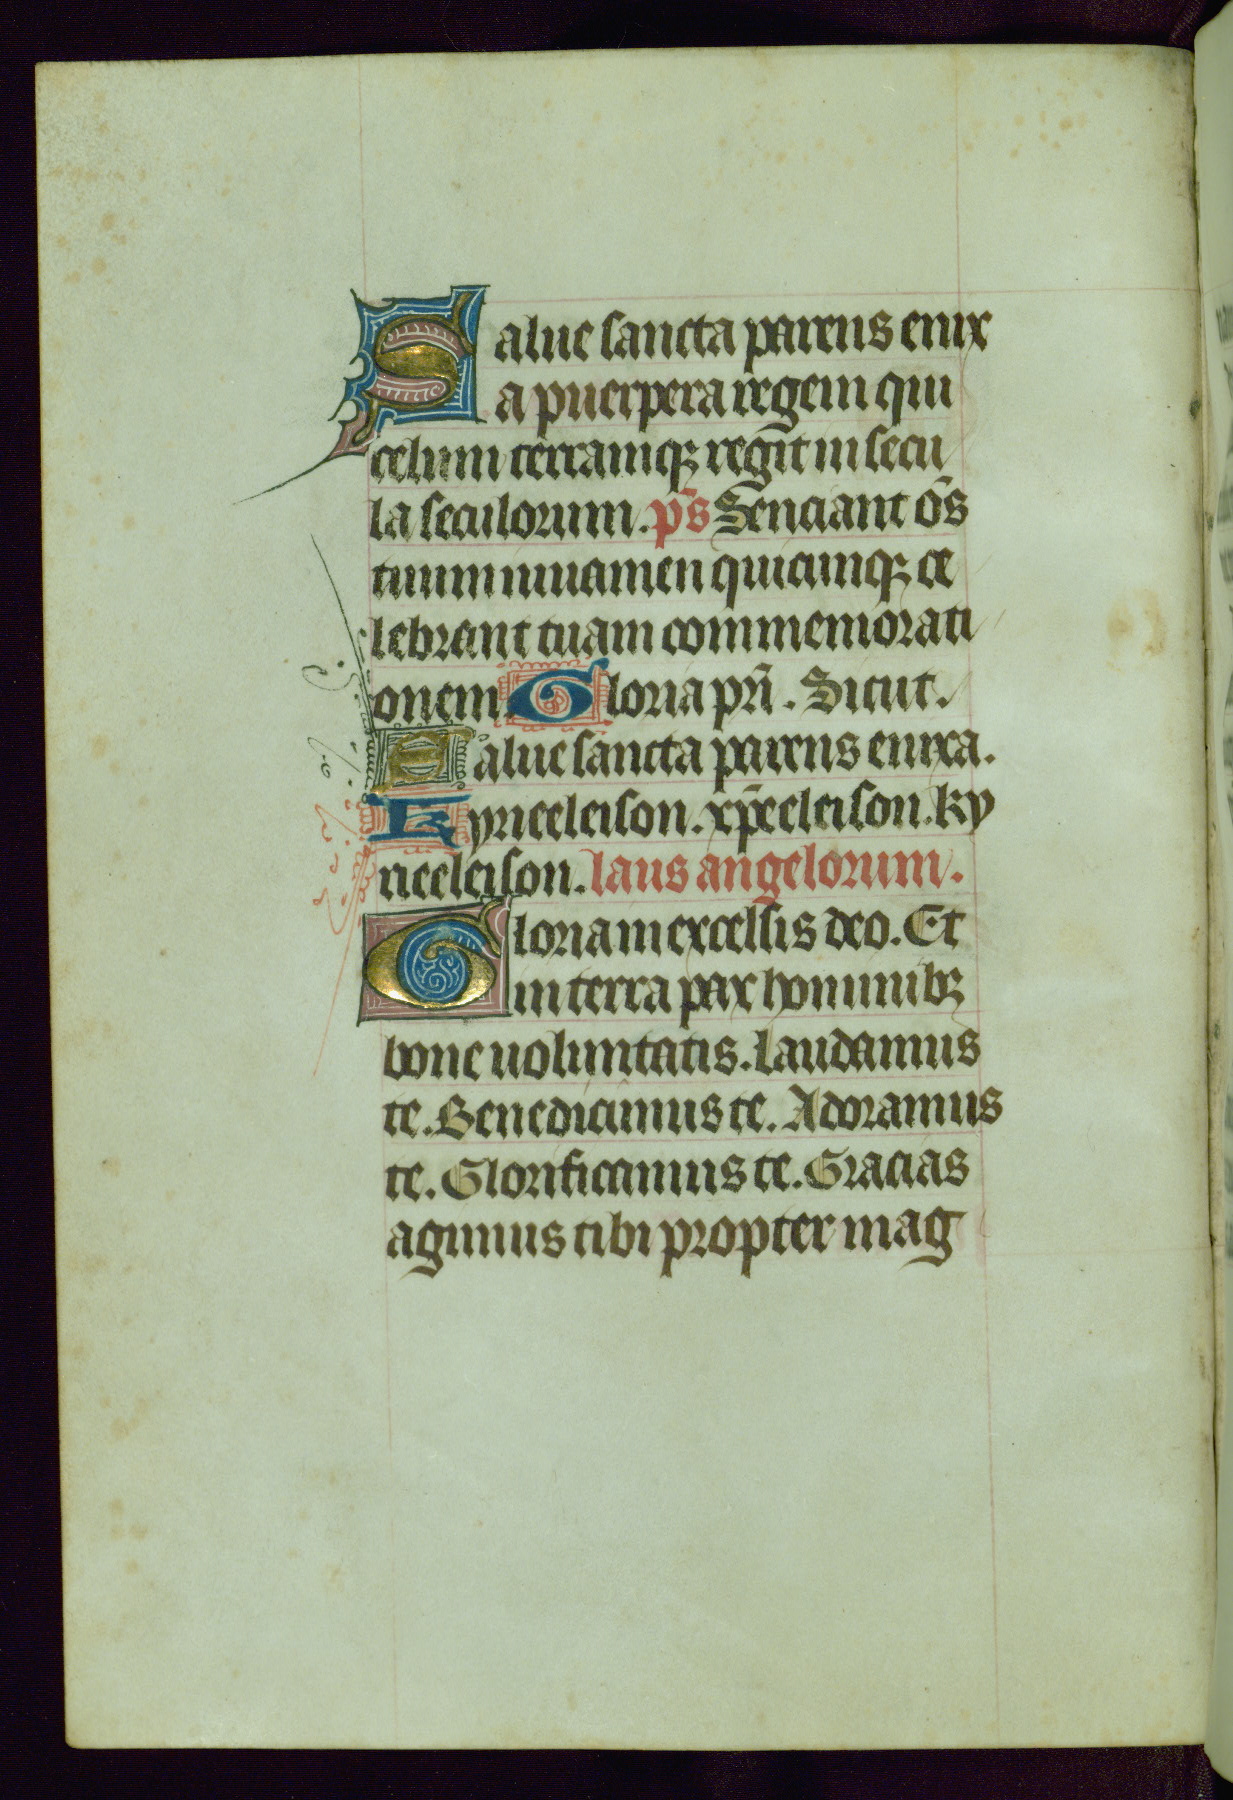 Salue sancta parens enix
a puerpera regem qui
celum terramqꝫ regit̄ in secu
la seculorum. p̄s Senciant om̄s
tuum iuuamen quicumqꝫ ce
lebrant tuam commemorati
onem Gloria pr̄i. Sicut.
Salue sancta parens enixa.
Kyrieeleison. xp̄eeleison. ky
rieeleison. laus angelorum.
Gloria in excelsis deo. Et
in terra pax hominibꝫ
bone uoluntatis. Laudamus
te. Benedicimus te. Adoramus
te. Glorificamus te. Gracias
agimus tibi propter mag